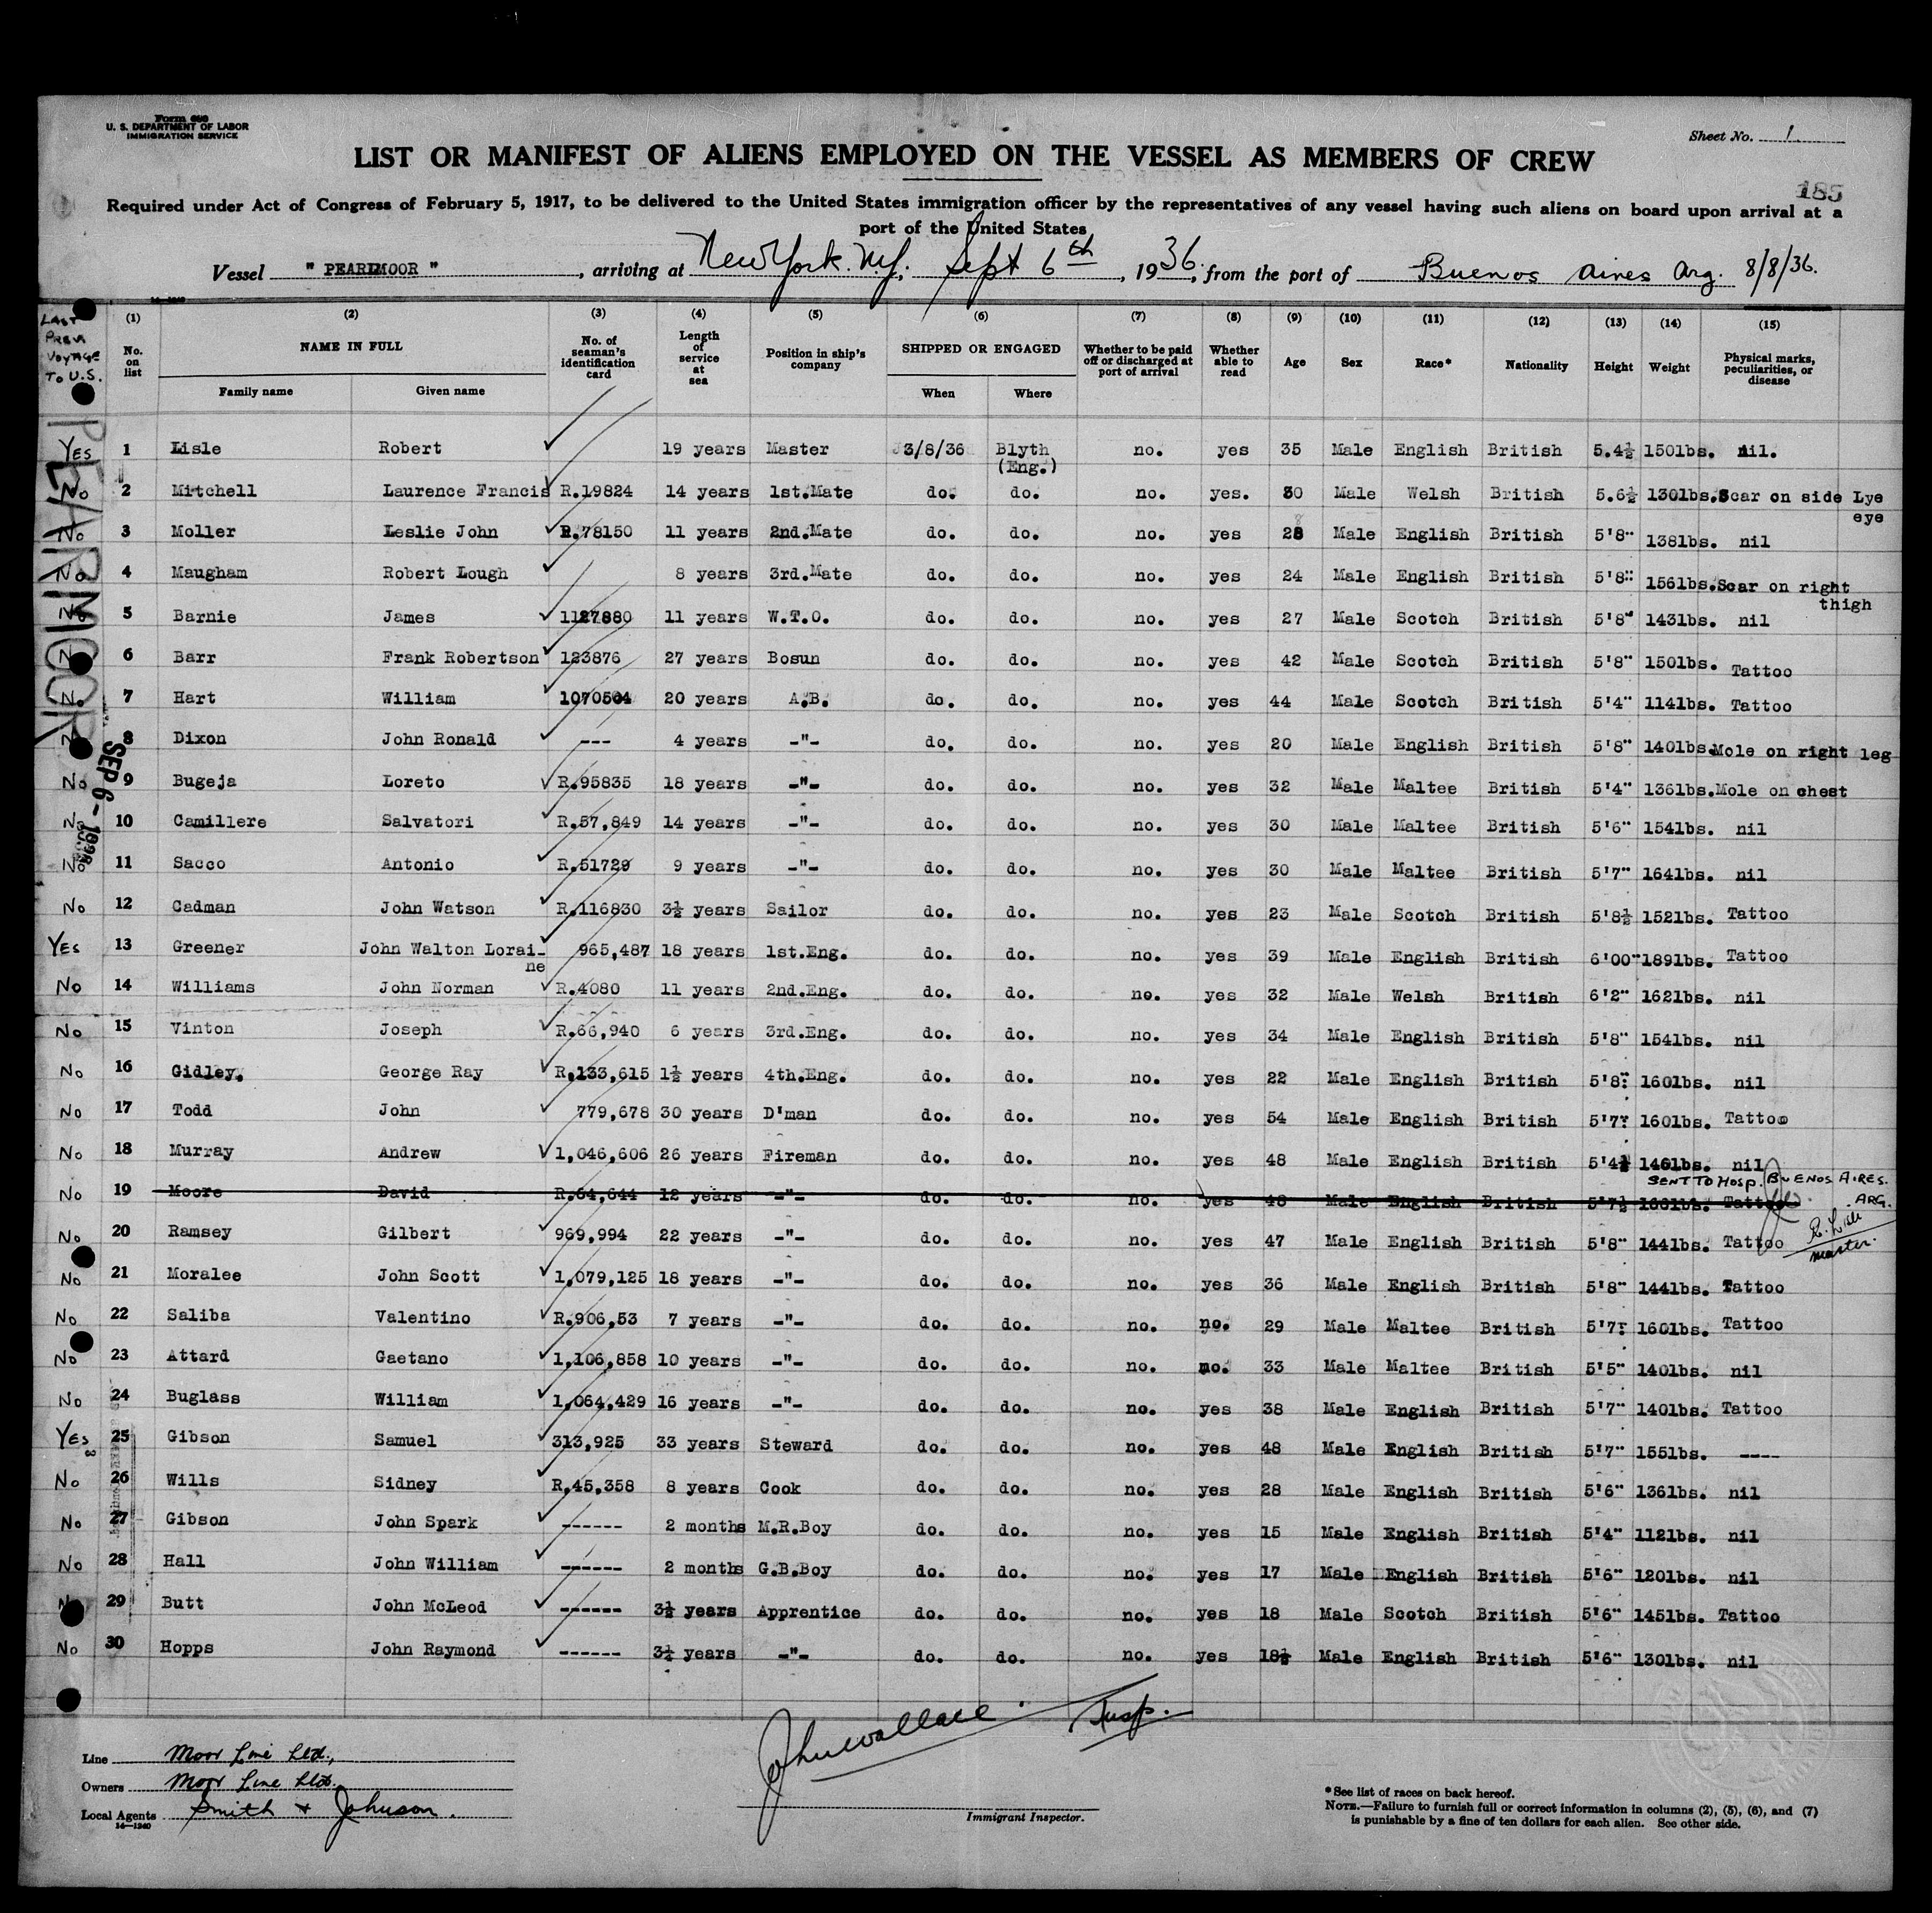 Form 680
U. S. DEPARTMENT OF LABOR
IMMIGRATION SERVICE
Sheet No. 1
LIST OR MANIFEST OF ALIENS EMPLOYED ON THE VESSEL AS MEMBERS OF CREW
185
Required under Act of Congress of February 5, 1917, to be delivered to the United States immigration officer by the representatives of any vessel having such aliens on board upon arrival at a
port of the United States
Vessel " PEARLMOOR ", arriving at New York. N.Y., Sept 6th, 1936, from the port of Buenos Aires Arg. 8/8/36.
LAST PREV VOYAGE TO U.S.
(1) (2) (3) (4) (5) (6) (7) (8) (9) (10) (11) (12) (13) (14) (15)
No. on list NAME IN FULL No. of seaman's identification card Length of service at sea Position in ship's company SHIPPED OR ENGAGED Whether to be paid off or discharged at port of arrival Whether able to read Age Sex Race* Nationality Height Weight Physical marks, peculiarities, or disease
Family name Given name When Where
Yes 1 Lisle Robert 19 years Master 3/8/36 Blyth (Eng.) no. yes 35 Male English British 5.4½ 150lbs. nil.
No 2 Mitchell Laurence Francis R.19824 14 years 1st.Mate do. do. no. yes. 30 Male Welsh British 5.6½ 130lbs. Scar on side Lye eye
No 3 Moller Leslie John R.78150 11 years 2nd.Mate do. do. no. yes 28 Male English British 5'8" 138lbs. nil
No 4 Maugham Robert Lough 8 years 3rd.Mate do. do. no. yes 24 Male English British 5'8" 156lbs. Scar on right thigh
No 5 Barnie James 1127880 11 years W.T.O. do. do. no. yes 27 Male Scotch British 5'8" 143lbs. nil
No 6 Barr Frank Robertson 123876 27 years Bosun do. do. no. yes 42 Male Scotch British 5'8" 150lbs. Tattoo
No 7 Hart William 1070504 20 years A.B. do. do. no. yes 44 Male Scotch British 5'4" 114lbs. Tattoo
No 8 Dixon John Ronald --- 4 years -"- do. do. no. yes 20 Male English British 5'8" 140lbs. Mole on right leg
No 9 Bugeja Loreto R.95835 18 years -"- do. do. no. yes 32 Male Maltee British 5'4" 136lbs. Mole on chest
No 10 Camillere Salvatori R.57,849 14 years -"- do. do. no. yes 30 Male Maltee British 5'6" 154lbs. nil
No 11 Sacco Antonio R.51729 9 years -"- do. do. no. yes 30 Male Maltee British 5'7" 164lbs. nil
No 12 Cadman John Watson R.116830 3½ years Sailor do. do. no. yes 23 Male Scotch British 5'8½ 152lbs. Tattoo
Yes 13 Greener John Walton Lorai-ne 965,487 18 years 1st.Eng. do. do. no. yes 39 Male English British 6'00" 189lbs. Tattoo
No 14 Williams John Norman R.4080 11 years 2nd.Eng. do. do. no. yes 32 Male Welsh British 6'2" 162lbs. nil
No 15 Vinton Joseph R.66,940 6 years 3rd.Eng. do. do. no. yes 34 Male English British 5'8" 154lbs. nil
No 16 Gidley. George Ray R.133,615 1½ years 4th.Eng. do. do. no. yes 22 Male English British 5'8" 160lbs. nil
No 17 Todd John 779,678 30 years D'man do. do. no. yes 54 Male English British 5'7" 160lbs. Tattoo
No 18 Murray Andrew 1,046,606 26 years Fireman do. do. no. yes 48 Male English British 5'4½ 146lbs. nil
SENT TO HOSP. BUENOS AIRES. ARG.
No 19 Moore David R.64,644 12 years -"- do. do. no. yes 48 Male English British 5'7½ 160lbs. Tattoo
R. Lisle master.
No 20 Ramsey Gilbert 969,994 22 years -"- do. do. no. yes 47 Male English British 5'8" 144lbs. Tattoo
No 21 Moralee John Scott 1,079,125 18 years -"- do. do. no. yes 36 Male English British 5'8" 144lbs. Tattoo
No 22 Saliba Valentino R.906,53 7 years -"- do. do. no. no. 29 Male Maltee British 5'7" 160lbs. Tattoo
No 23 Attard Gaetano 1,106,858 10 years -"- do. do. no. no. 33 Male Maltee British 5'5" 140lbs. nil
No 24 Buglass William 1,064,429 16 years -"- do. do. no. yes 38 Male English British 5'7" 140lbs. Tattoo
Yes 25 Gibson Samuel 313,925 33 years Steward do. do. no. yes 48 Male English British 5'7" 155lbs. ----
No 26 Wills Sidney R.45,358 8 years Cook do. do. no. yes 28 Male English British 5'6" 136lbs. nil
No 27 Gibson John Spark ------ 2 months M.R.Boy do. do. no. yes 15 Male English British 5'4" 112lbs. nil
No 28 Hall John William ------ 2 months G.B.Boy do. do. no. yes 17 Male English British 5'6" 120lbs. nil
No 29 Butt John McLeod ------ 3½ years Apprentice do. do. no. yes 18 Male Scotch British 5'6" 145lbs. Tattoo
No 30 Hopps John Raymond ------ 3½ years -"- do. do. no. yes 18½ Male English British 5'6" 130lbs. nil
PEARLMOOR
SEP 6 - 1936
John Wallace Insp.
Immigrant Inspector.
Line Moor Line Ltd.,
Owners Moor Line Ltd.
Local Agents Smith & Johnson.
14—1240
*See list of races on back hereof.
NOTE.—Failure to furnish full or correct information in columns (2), (5), (6), and (7)
is punishable by a fine of ten dollars for each alien. See other side.